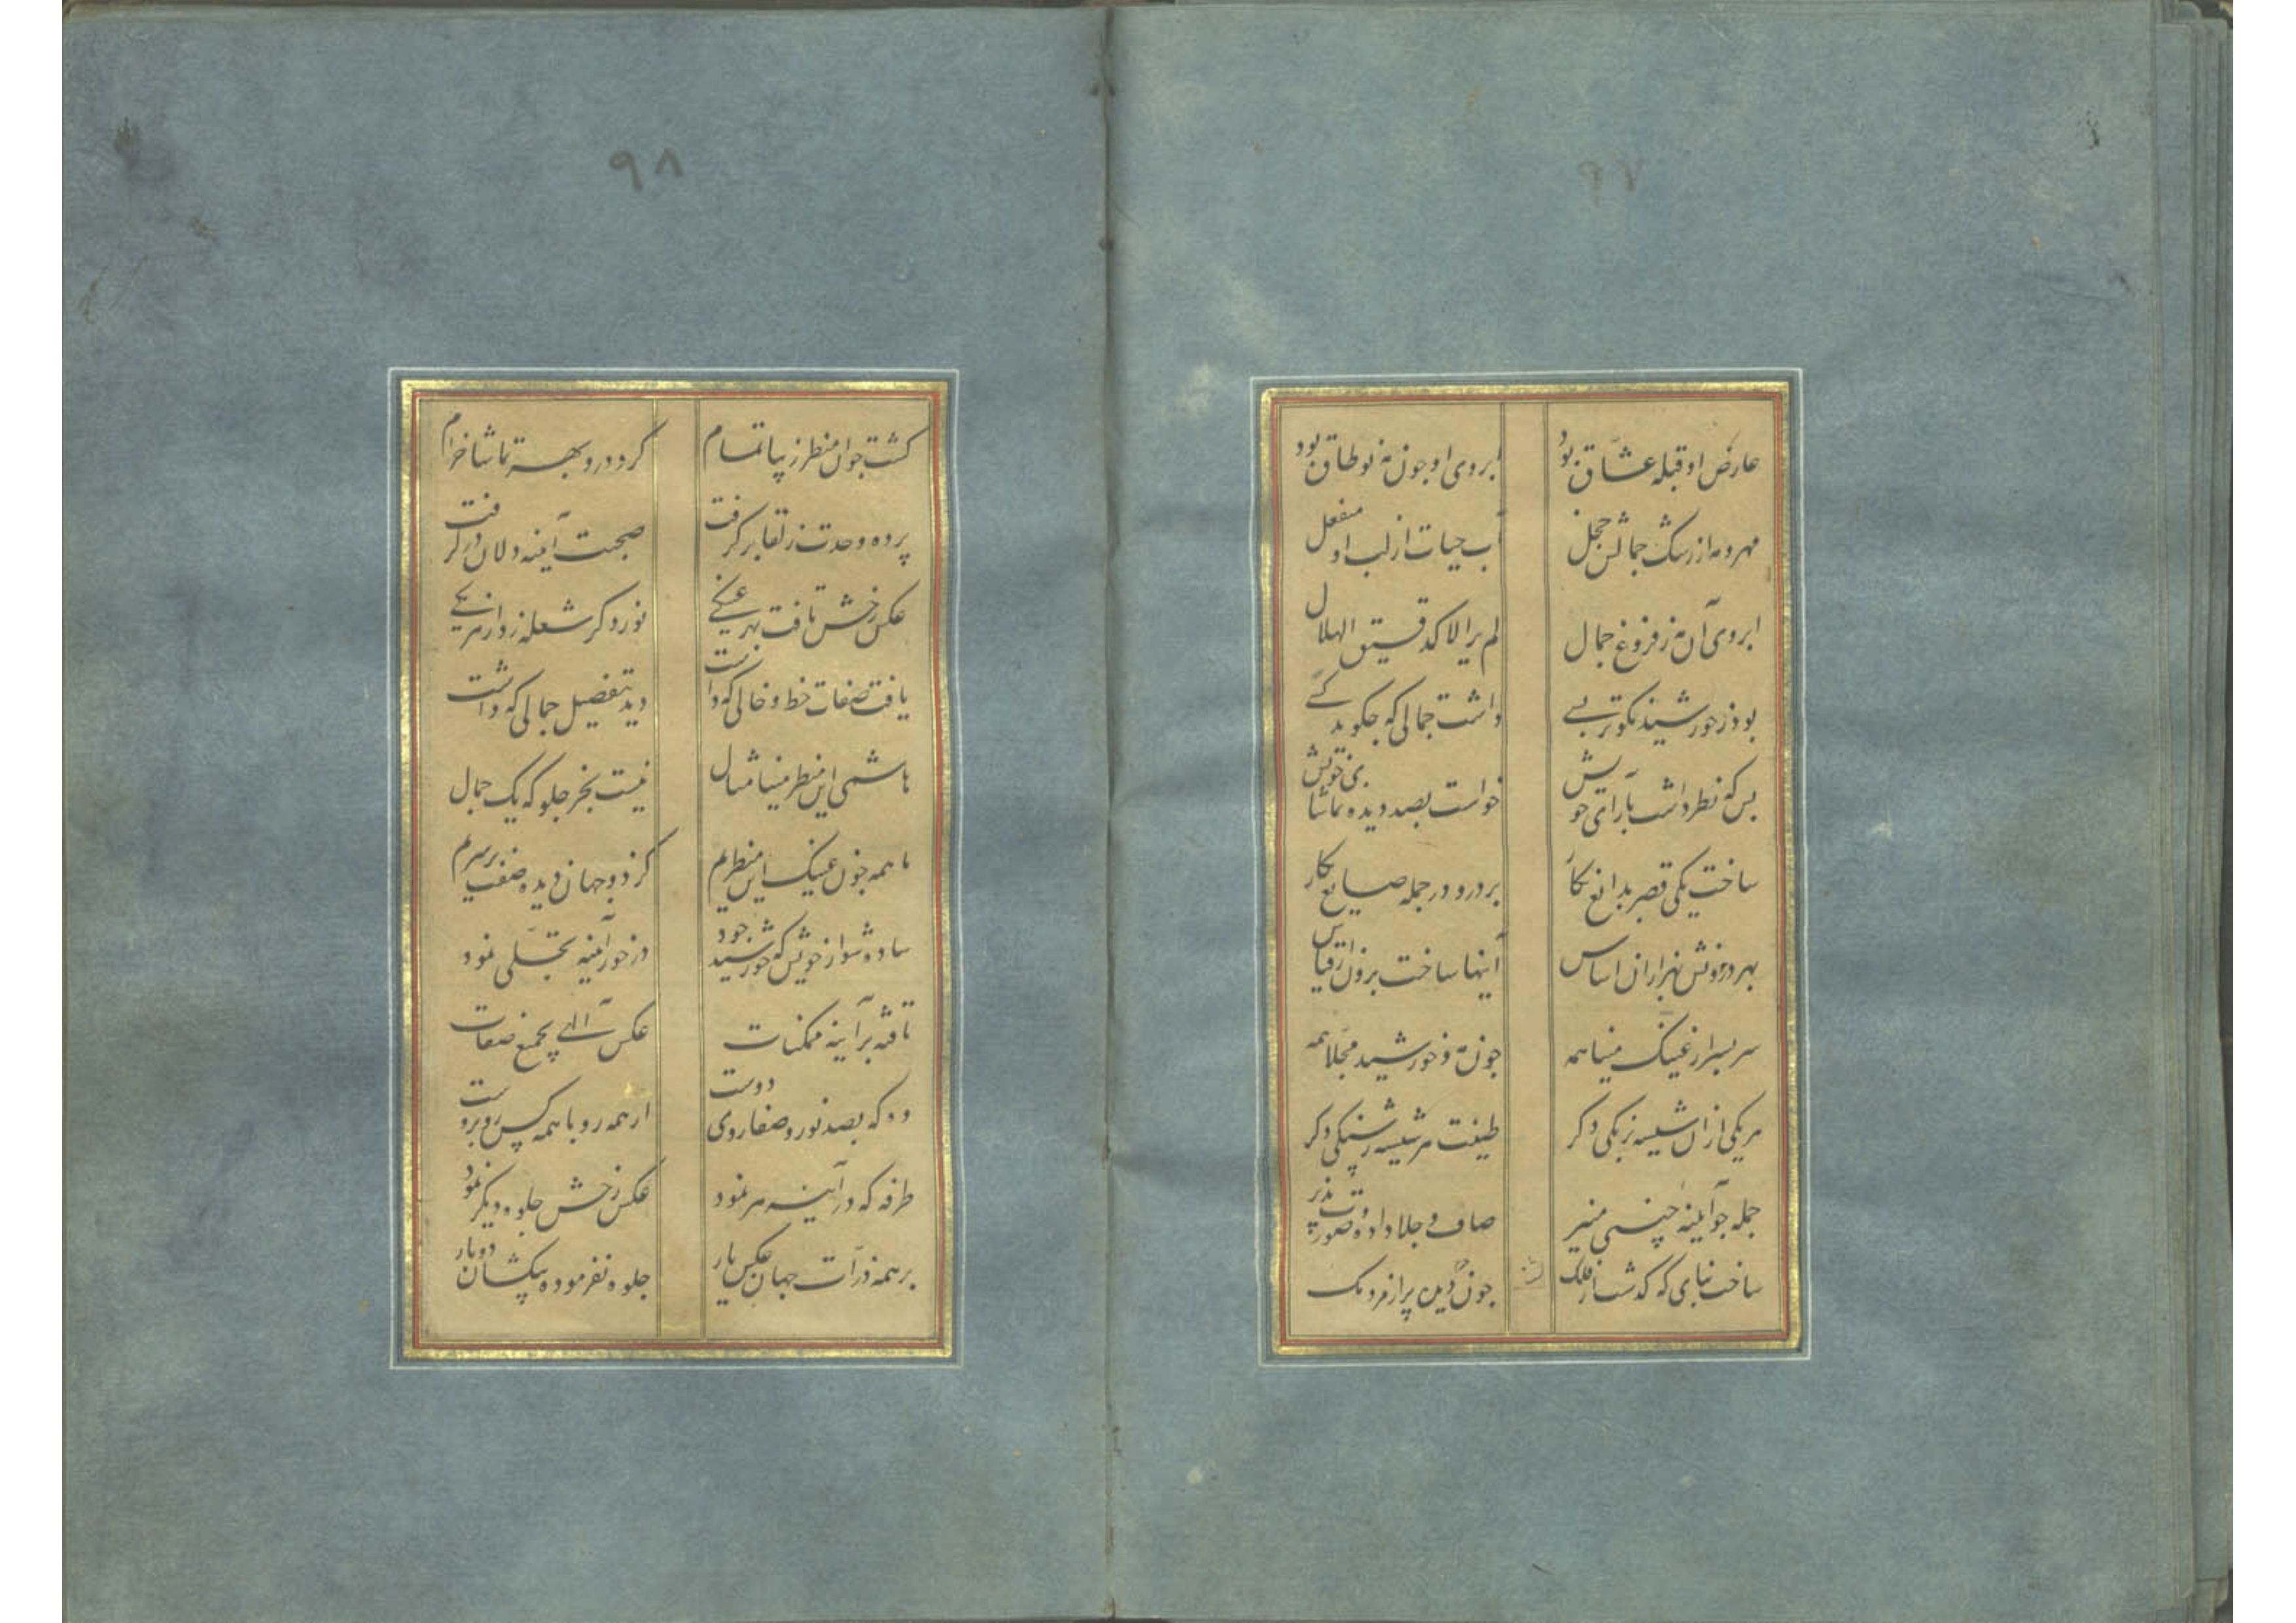 ٩٧
عارض او قبله عشاق بود ابروی او چون مه نو طاق بود
مهر و مه از رشک جمالش خجل آب حیات از لب او منفعل
ابروی آن مه ز فروغ جمال لم یر الا کدقیق الهلال
بود ز خورشید نکوتر بسی داشت جمالی که چکوید کسی
بس که نظر داشت بآرای خویش خواست بصد دیده تماشای خویش
ساخت یکی قصر بدایع نکار برد درو در جمله صنایع بکار
بهر درونش هزاران اساس آینها ساخت برون از قیاس
سر بسر از عینک مینا همه چون مه و خورشید مجلا همه
هر یکی از آن شیشه برنکی دکر طینت هر شیشه ز سنکی دکر
جمله چو آیینه چینی منیر صاف و جلا داده و صورت پذیر
ساخت بنایی که کذشت از فلک چون دیده پر از مردمک
٩٨
کشت چو آن منظر زیبا تمام کرد درو بهر تماشا خرام
پرده وحدت ز لقا بر کرفت صحبت آینه دلان در کرفت
عکس رخش تافت بهر عینکی نور دکر شعله زد از هر یکی
یافت صفات خط و خالی که داشت دید بتفصیل جمالی که داشت
هاشمی این منظر مینا مثال نیست بجز جلوه که یک جمال
ما همه چون عینک این منظریم کز دو جهان دیده صفت بر سریم
ساده شو از خویش که خورشید جود در خور آیینه تجلی نمود
تافته بر آینه ممکنات عکس الهی بجمیع صفات
وه که بصد نور و صفا روی دوست از همه رو با همه کس روبروست
طرفه که در آینه هر نمود عکس رخش جلوه دیکر نمود
بر همه ذرات جهان عکس یار جلوه نفرموده بیکشان دوبار